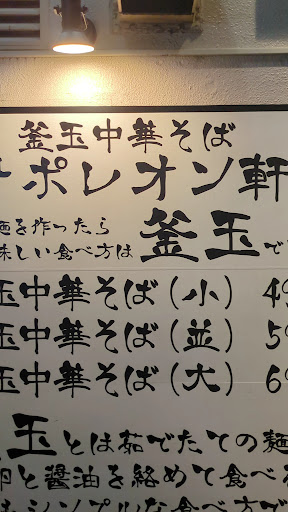 釜玉中華そば
ポレオン軒
麺を作ったら
味しい食べ方は
釜玉で
玉中華そば(小) 4
玉中華そば(並) 5
玉中華そば(大) 6
玉とは茹でたての麺
卵と醤油を絡めて食べ
シンプルな食べ方で